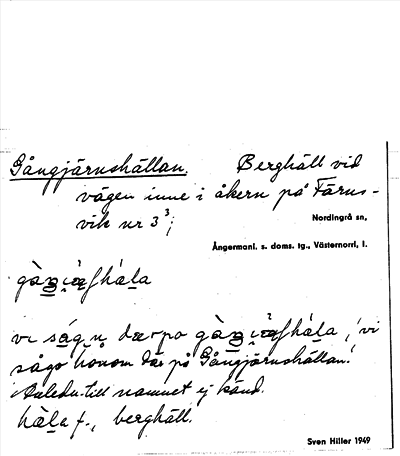 Gångjärnshällan. Berghäll vid
vägen inne i åkern på Färns-
vik nr 3³;
Nordingrå sn,
Ångermanl. s. doms. tg., Västernorrl, l.
vi
vi
sågo honom där på Gångjärnshällan!
Anledn. till namnet ej känd.
hàla f., berghäll.
Sven Hiller 1949